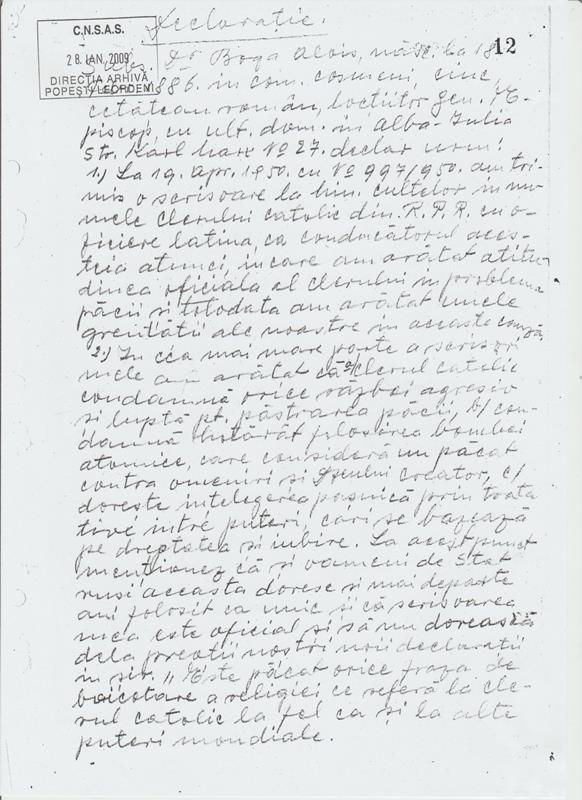 C.N.S.A.S.
28. IAN. 2009
DIRECȚIA ARHIVĂ
POPEȘTI LEORDENI
12
Declarație.
Boga Alois, născ. la 18
1886. in com. cosmeni, cinc,
cetățean român, locțiitor gen. E-
piscop, cu ult. dom. in Alba-Iulia
str. Karl Marx No 27. declar urm:
1.) La 19. Apr. 1950. cu No 997/950. am tri-
mis o scrisoare la Min. cultelor in nu-
mele Clerului catolic din. R.P.R. cu o-
ficiere latina, ca conducătorul aces-
teia atunci, in care am arătat atitu-
dinea oficiala al clerului in problema
păcii si totodata am arătat unele
greutătii ale noastre in aceaste cauză
2.) In cea mai mare parte a scrisori
mele am arătat că a/ Clerul catolic
condamnă orice război agresiv
si luptă pt. păstrarea păcii, b/ con-
damnă hotărât folosirea bombei
atomice, care consideră un păcat
contra omeniri si Dzeului Creator, c/
doreste intelegerea pasnică prin trata
tive intre puteri, cari se bazează
pe dreptatea si iubire. La acest punct
mentionez că si oameni de Stat
rusi aceasta doresc si mai departe
am folosit ca unic si că scrisoarea
mea este oficial si să nu dorească
dela preotii nostri noii declaratii
in sir. „Este păcat orice fraza de
boicotare a religiei ce referă la cle-
rul catolic la fel ca și la alte
puteri mondiale.